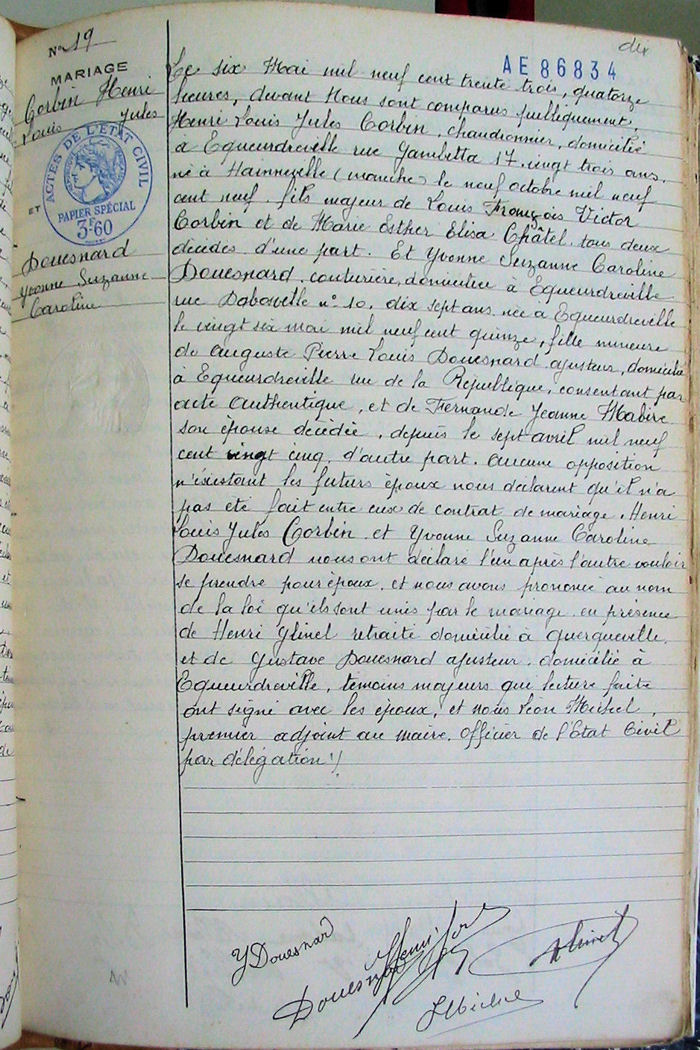 dix
AE86834
No 19
MARIAGE
Corbin Henri
Louis Jules
ACTES DE L'ETAT CIVIL
PAPIER SPÉCIAL
3F60
ET
Douesnard
Yvonne Suzanne
Caroline
Le six Mai mil neuf cent trente trois, quatorze
heures, devant Nous sont comparus publiquement,
Henri Louis Jules Corbin, chaudronnier, domicilié
à Equeurdreville rue Gambetta 17, vingt trois ans,
né à Hainneville (manche) le neuf octobre mil neuf
cent neuf, fils majeur de Louis François Victor
Corbin et de Marie Esther Elisa Châtel, tous deux
décédés, d'une part. Et Yvonne Suzanne Caroline
Douesnard, couturière, domiciliée à Equeurdreville
rue n° 10, dix sept ans, née à Equeurdreville
le vingt six mai mil neuf cent quinze, fille mineure
de Auguste Pierre Louis Douesnard ajusteur, domicilié
à Equeurdreville rue de la République, consentant par
acte authentique, et de Fernande Jeanne Mabire
son épouse décédée, depuis le sept avril mil neuf
cent vingt cinq, d'autre part. Aucune opposition
n'existant les futurs époux nous déclarent qu'il n'a
pas été fait entre eux de contrat de mariage. Henri
Louis Jules Corbin, et Yvonne Suzanne Caroline
Douesnard nous ont déclaré l'un après l'autre vouloir
se prendre pour époux, et nous avons prononcé au nom
de la loi qu'ils sont unis par le mariage, en présence
de Henri retraité domicilié à Querqueville,
et de Gustave Douesnard ajusteur, domicilié à
Equeurdreville, témoins majeurs qui lecture faite
ont signé avec les époux, et nous Léon Michel,
premier adjoint au maire, Officier de l'Etat Civil
par délégation ./.
YDouesnard
Douesnard
Henri
LMichel